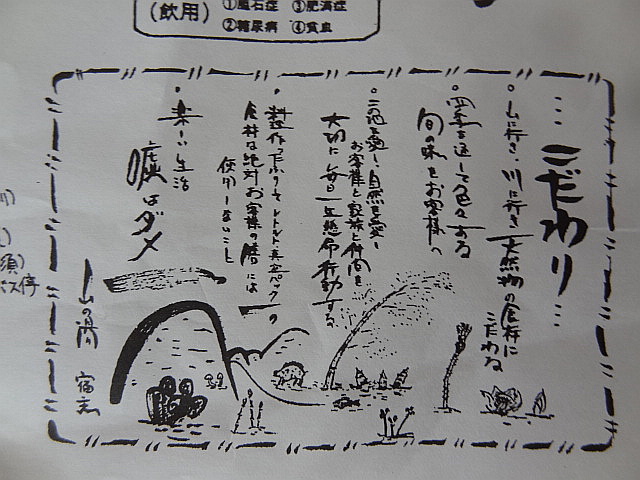 (飲用)
①胆石症 ③肥満症
②糖尿病 ④貧血
…こだわり…
・山に行き、川に行き天然物の食材に
こだわる
・四季を通して色々ある
旬の味をお客様へ
・この地を愛し自然を愛し
お客様と家族と仲間を
大切に毎日一生懸命行動する
・料理作ったふりをしてレトルト・真空パックの
食材は絶対お客様の膳には
使用しないこと
・楽しい生活
嘘はダメ
山の湯 宿
バス停